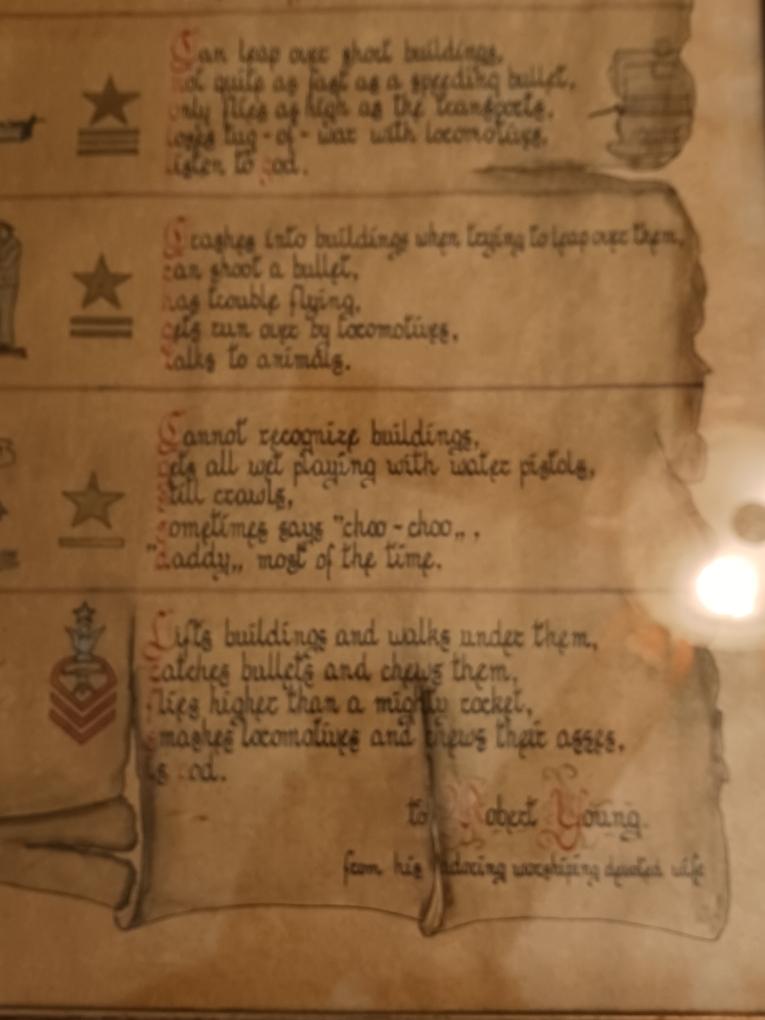 Can leap over short buildings,
Not quite as fast as a speeding bullet,
Only flies as high as the transports,
Loses tug-of-war with locomotives,
Listen to God.
Crashes into buildings when trying to leap over them,
Can shoot a bullet,
Has trouble flying,
Gets run over by locomotives,
Talks to animals.
Cannot recognize buildings,
Gets all wet playing with water pistols,
Still crawls,
Sometimes says "choo-choo„,
"Daddy„ most of the time.
Lifts buildings and walks under them,
Catches bullets and chews them,
Flies higher than a mighty rocket,
Smashes locomotives and chews their asses,
Is God.
to Robert Young.
from his adoring worshiping devoted wife